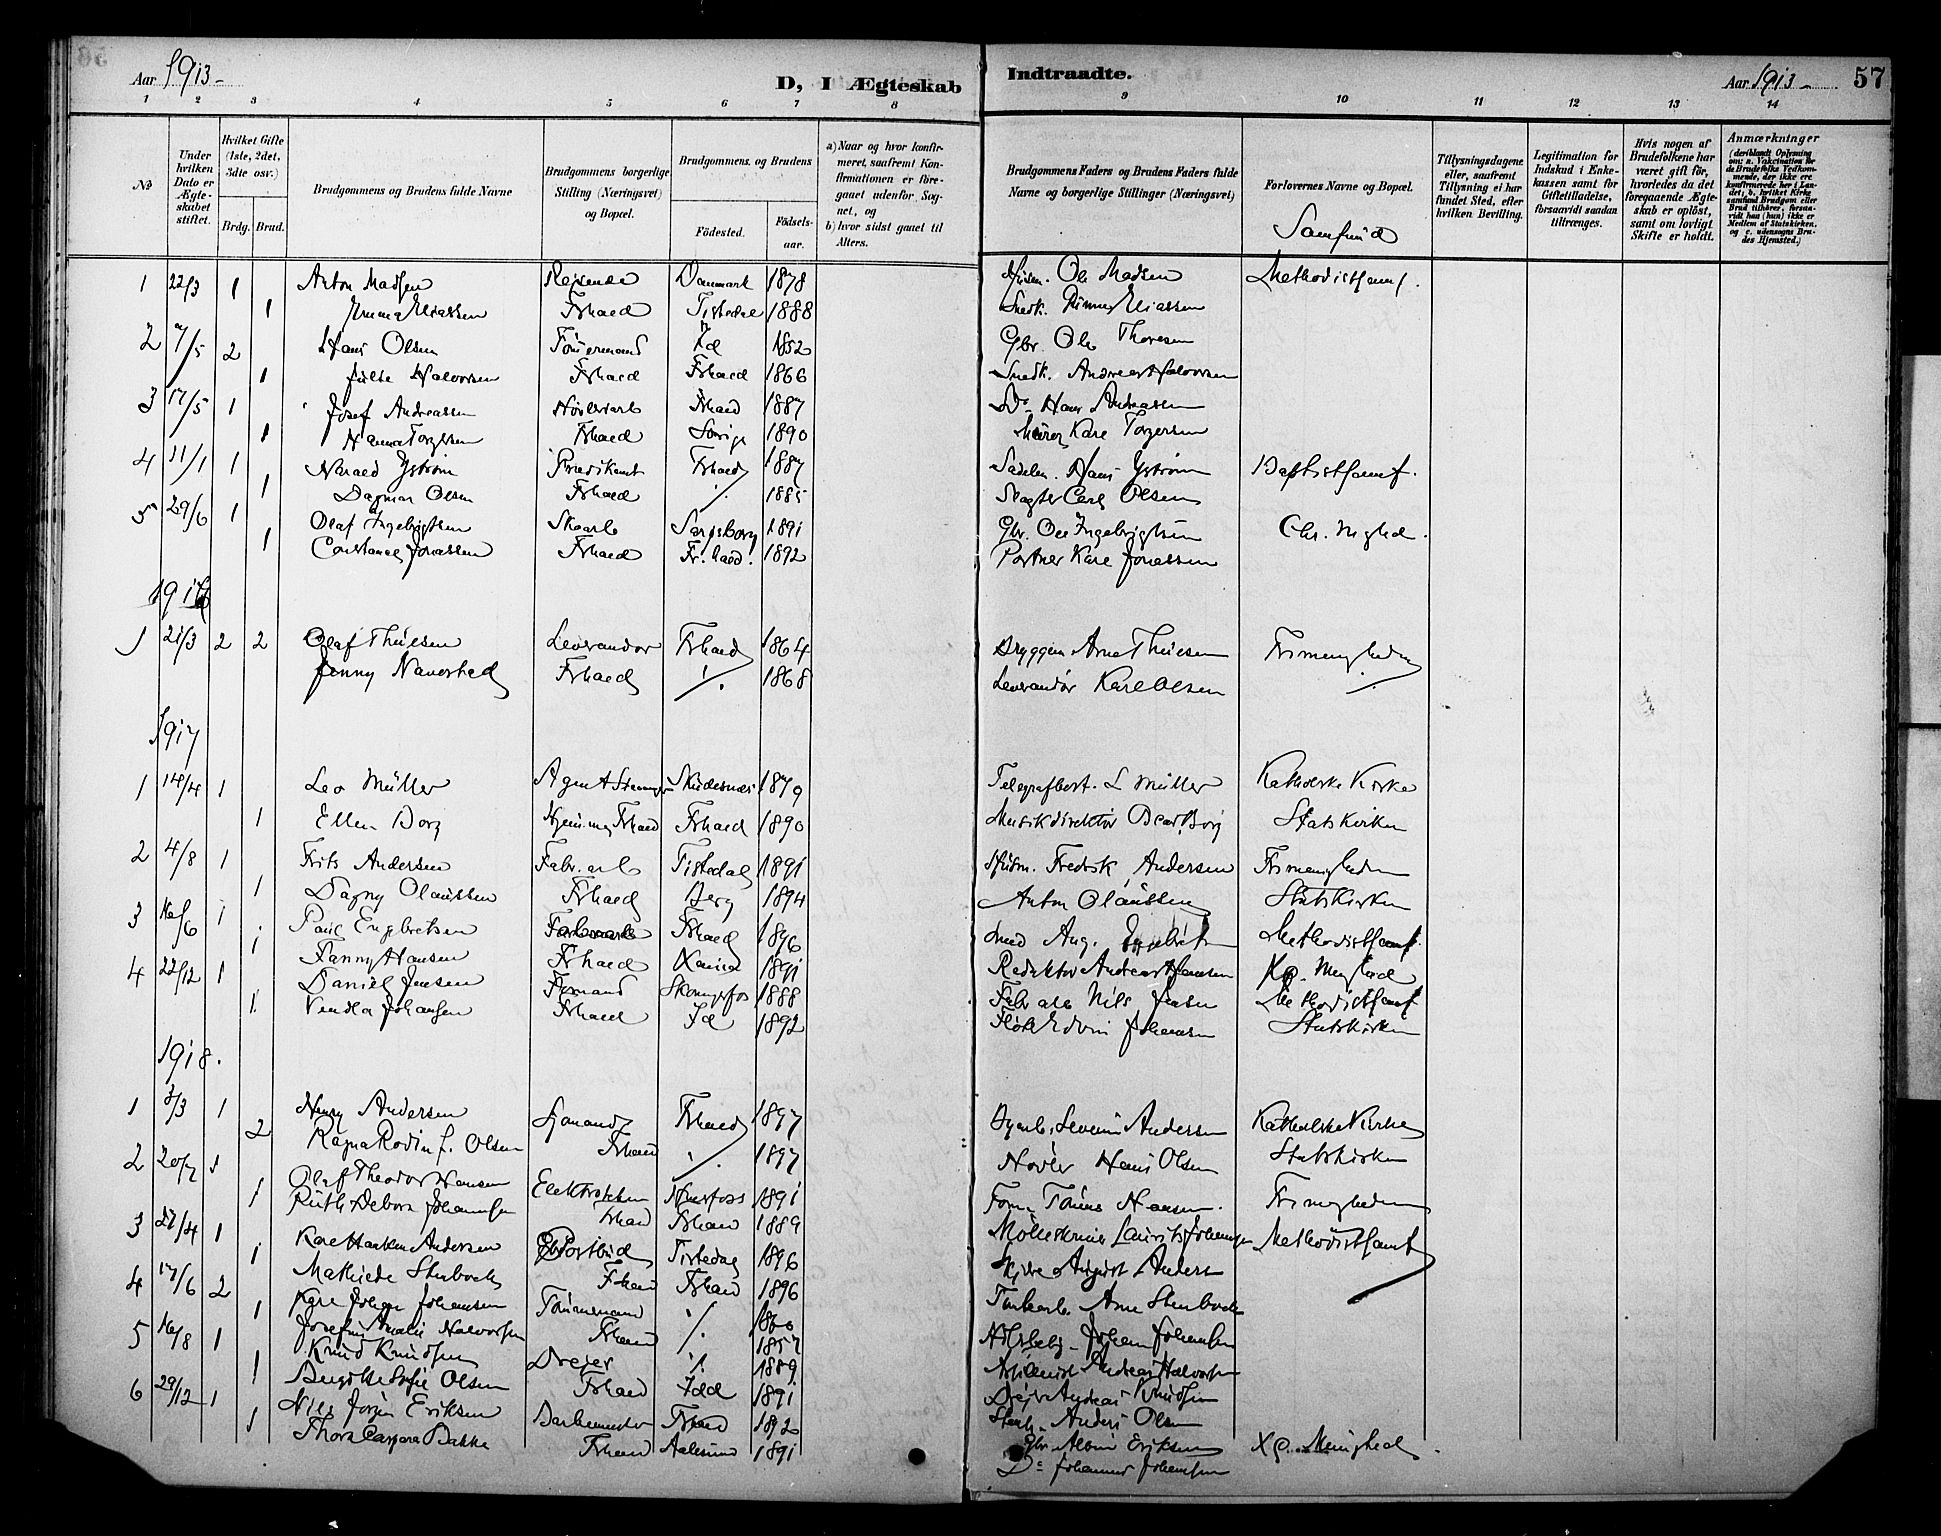 Aar 1913 - D, I Ægteskab Indtraadte. Aar 1913 - 57
1 2 3 4 5 6 7 8 9 10 11 12 13 14
No
Under hvilken Dato er Ægteskabet stiftet.
Hvilket Gifte (1ste, 2det, 3dte osv.)
Brdg. Brud.
Brudgommens og Brudens fulde Navne
Brudgommens borgerlige Stilling (Næringsvei) og Bopæl.
Brudgommens og Brudens
Fødested. Fødselsaar.
a) Naar og hvor konfirmeret, saafremt Konfirmationen er foregaaet udenfor Sognet, og
b) hvor sidst gaaet til Alters.
Brudgommens Faders og Brudens Faders fulde Navne og borgerlige Stillinger (Næringsvei)
Forlovernes Navne og Bopæl.
Samfund
Tillysningsdagene eller, saafremt Tillysning ei har fundet Sted, efter hvilken Bevilling.
Legitimation for Indskud i Enkekassen samt for Giftetilladelse, forsaavidt saadan tiltrænges.
Hvis nogen af Brudefolkene har været gift før, hvorledes da det foregaaende Ægteskab er opløst, samt om lovligt Skifte er holdt.
Anmærkninger
(deriblandt Oplysning om: a. Vakcination for de Brudefolks Vedkommende, der ikke ere konfirmerede her i Landet; b. hvilket Kirkesamfund Brudgom eller Brud tilhører, forsaavidt han (hun) ikke er Medlem af Statskirken, og c. udensogns Brudes Hjemsted.)
1 22/3 1 Anton Madsen Reisende Danmark 1878 Ole Madsen Methodistsamf.
1 Emma Eliassen Frhald Tistedal 1888 Snedk. Eliassen
2 7/5 2 Hans Olsen Tømermand Id 1852 Gbr. Ole Thoresen
1 Julie Halvorsen Frhald Frhald 1866 Snedk. Andreas Halvorsen
3 17/5 1 Josef Andreassen Høvleriarb Frhald 1887 Do Hans Andreassen
1 Hanna Torgersen Frhald Sverige 1890 Murer Karl Torgersen
4 11/1 1 Harald Ystrøm Prædikant Frhald 1887 Sadelm. Hans Ystrøm Baptistsamf.
1 Dagmar Olsen Frhald ./. 1885 Slagter Carl Olsen
5 29/6 1 Olaf Ingebrigtsen Skoarb Sarpsborg 1891 Gbr. Ole Ingebrigtsen Chr. Mghed.
1 Constance Jonassen Frhald Fr.hald. 1892 Portner Karl Jonassen
1 21/3 2 2 Olaf Thuesen Leverandør Frhald 1864 Bryggem Arne Thuesen Frimenigheden
Jenny Navestad Frhald ./. 1868 Leverandør Karl Olsen ./.
1917
1 14/4 1 Leo Müller Agent Skudesnæs 1879 Telegrafbest. L Müller Katholske Kirke
1 Ellen Borg Frhald Frhald 1890 Musikdirektør Oscar Borg Statskirken
2 4/8 1 Frits Andersen Fabr.arb Tistedal 1891 Husm. Fredrik Andersen Frimenigheden
1 Dagny Olaussen Frhald Berg 1894 Anton Olaussen Statskirken
3 16/6 1 Paul Engebretsen Frhald 1896 Smed Aug. Engebretsen Methodistsamf.
1 Fanny Hansen Frhald 1891 Redaktør Andreas Hansen Mghed
4 22/12 1 Daniel Jensen Skonnfos 1888 Fabr arb Nils Jensen Methodistsamf
1. Vendla Johansen Frhald Id 1892 Edvin Johansen Statskirken
1918.
1 3/3 1 Henry Andersen Sjømand Frhald 1897 Severin Andersen Katholske Kirke
2 Ragna Rodin f. Olsen Frhald ./. 1897 Høvler Hans Olsen Statskirken
2 20/7 1 Olaf Theodor Hansen Elektriker 1891 Form. Hansen. Frimenigheden
1 Ruth Debora Johannesen Frhald Frhald 1889 Laurits Johannesen Methodistsamf
3 27/4 1 Karl Haakon Andersen Postbud Tistedal 1896 August Andersen
1 Mathilde Stenbock Frhald Frhald 1896 Arne Stenbock
4 17/6 2 Karl Johan Johansen Tømmermand ./. 1860 Johan Johansen
1 Josefine Amalie Halvorsen Frhald ./. 1857 Andreas Halvorsen
5 16/8 1 Knud Knudsen Drejer ./. 1889 Drejer Andreas Knudsen
1 Birgitte Sofie Olsen Frhald Idd 1891 Anders Olsen
6 29/12 1 Nils Jørgen Eriksen Frhald 1892 Gbr. Eriksen Menighed
1 Thora Caspara Bakke Frhald Aalesund 1891 Do Johannes Johansen